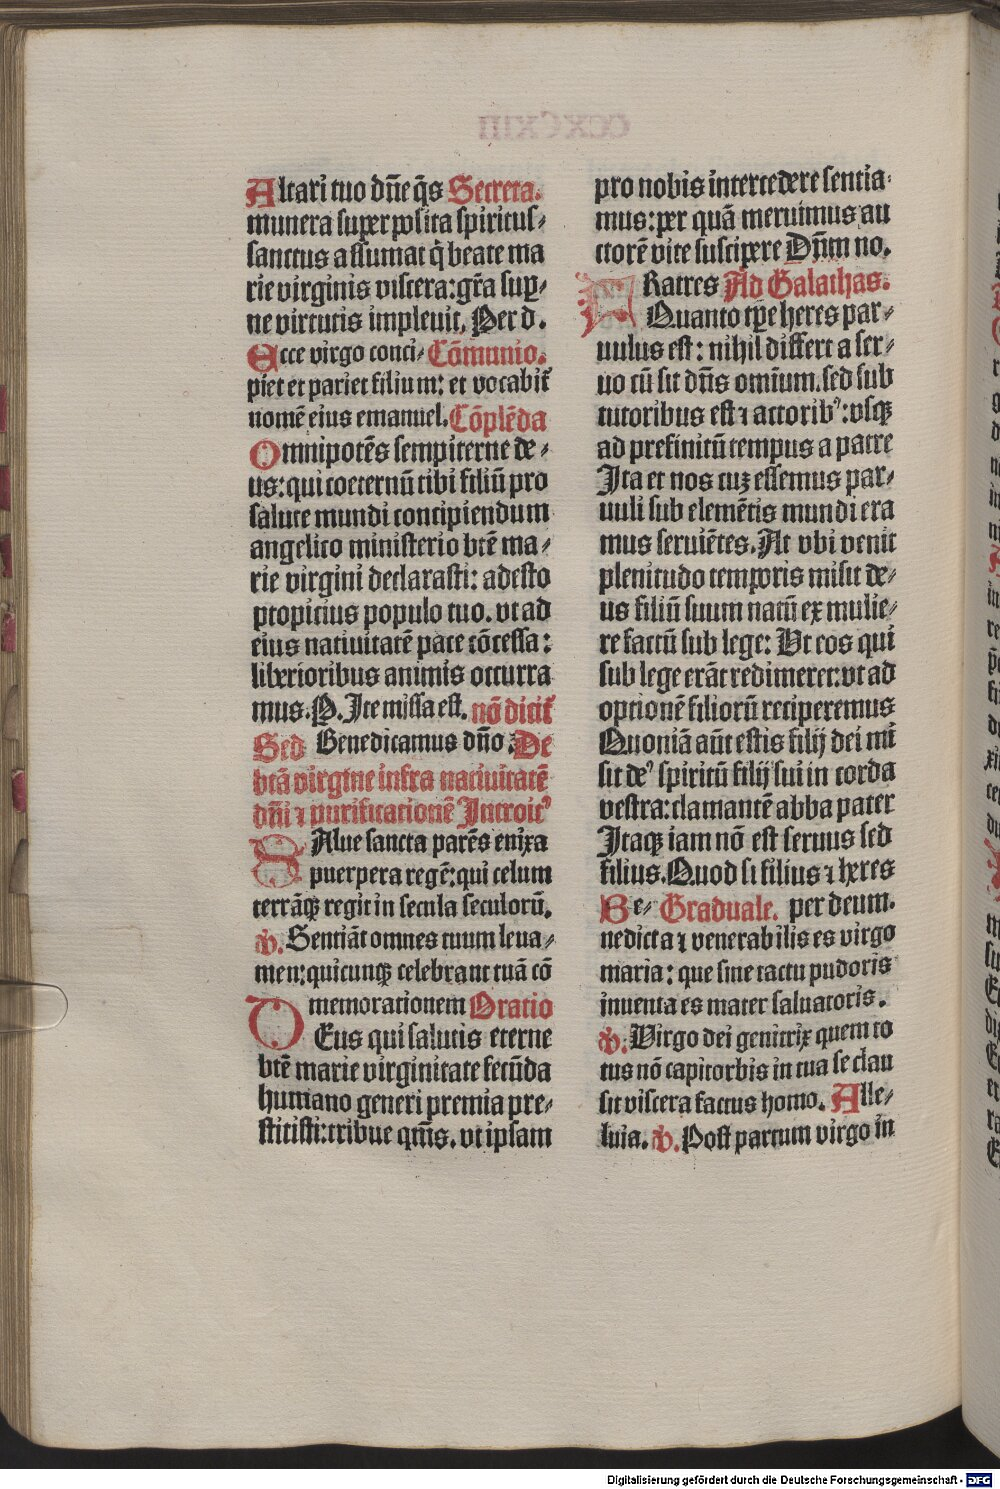 Altari tuo dñe q̃s Secreta.
munera superposita spiritus⸗
sanctus assumat q̇ beate ma
rie virginis viscera: gr̃a sup̱⸗
ne virtutis impleuit. Per d.
Ecce virgo conci⸗ Cõmunio.
piet et pariet filium: et vocabit᷑
nomẽ eius emanuel. Cõplẽda
Omnipotẽs sempiterne de⸗
us: qui coeternũ tibi filiũ pro
salute mundi concipiendum
angelico ministerio btẽ ma⸗
rie virgini declarasti: adesto
ptopicius populo tuo. vt ad
eius natiuitatẽ pace cõcessa:
liberioribus animis occurra
mus. P. Ite missa est. nõ dicit᷑
Sed Benedicamus dño. De
btã virgine infra natiuitatẽ
dñi ⁊ purificationẽ Introit᷒
SAlue sancta parẽs enixa
puerpera regẽ: qui celum
terrãqꝫ regit in secula seculorũ.
℣. Sentiãt omnes tuum leua⸗
men: quicunqꝫ celebrant tuã cõ
memorationem Oratio
DEus qui salutis eterne
btẽ marie virginitate fecũda
humano generi premia pre⸗
stitisti: tribue qm̃s. vt ipsam
pro nobis intercedere sentia⸗
mus: per quã meruimus au
ctorẽ vite suscipere Dñm no.
FRatres Ad Galathas.
Quanto tp̃e heres par⸗
uulus est: nihil differt a ser⸗
uo cũ sit dñs omĩum. sed sub
tutoribus est ⁊ actorib᷒: vsqꝫ
ad prefinitũ tempus a patre
Ita et nos cuꝫ essemus par⸗
uuli sub elemẽtis mundi era
mus seruiẽtes. At vbi venit
plenitudo temporis misit de⸗
us filiũ suum natũ ex mulie⸗
re factũ sub lege: Vt eos qui
sub lege erãt redimeret: vt ad
optionẽ filiorũ reciperemus
Quoniã aũt estis filij dei mi
sit de᷒ spiritũ filij sui in corda
vestra: clamantẽ abba pater
Itaqꝫ iam nõ est seruus sed
filius. Quod si filius ⁊ heres
Be⸗ Graduale. per deum.
nedicta ⁊ venerabilis es virgo
maria: que sine tactu pudoris
inuenta es mater saluatoris.
℣. Virgo dei genitrix quem to
tus nõ capit orbis in tua se clau
sit viscera factus homo. Alle⸗
luia. ℣. Post partum virgo in
Digitalisierung gefördert durch die Deutsche Forschungsgemeinschaft - DFG